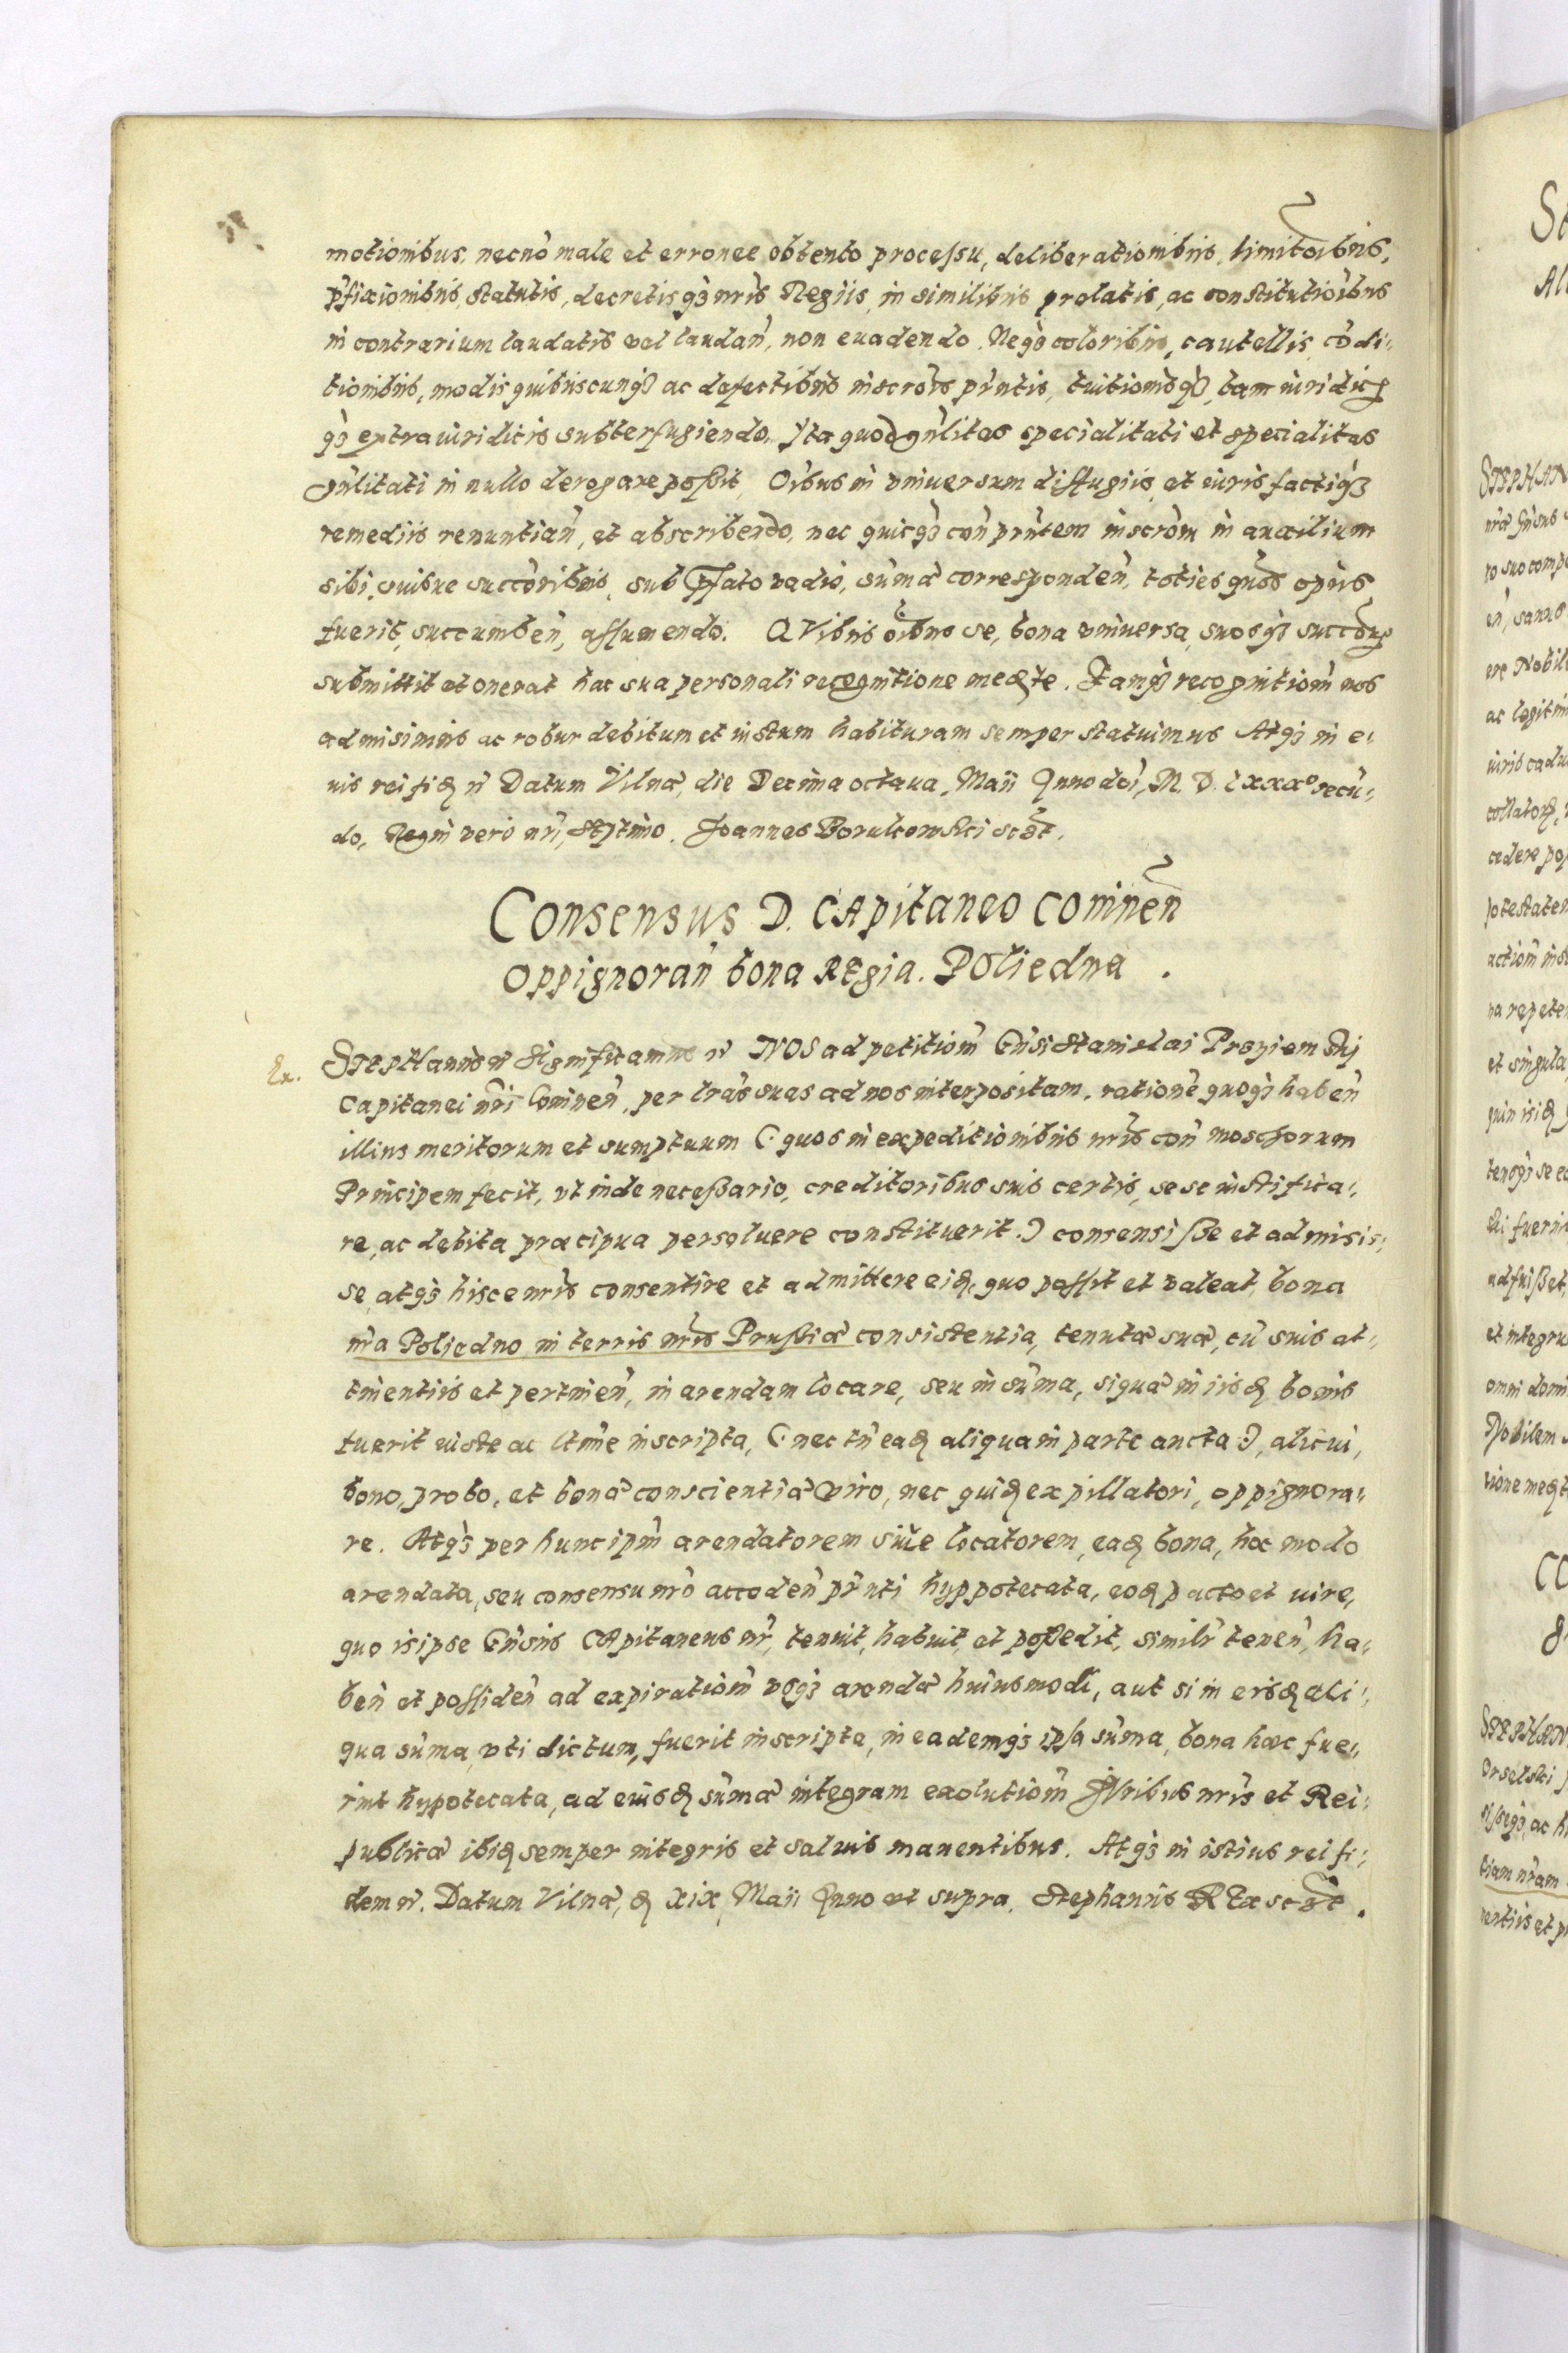 motionibus, necnõ male et erronee obtento processu, deliberationibus, limitõibus,
p̃fixionibus, statutis, decretisqз nr̃is Regiis, in similibus prolatis, ac constitutiõibus
in contrarium laudatis vel laudañ, non euadendo. Neqз coloribus, cautellis, cõdi-
tionibus, modis quibuscunqз ac defectibus inscrõis pñtis, tuitionisqз, tam iuridicis
qз extraiuridicis subterfugiendo. Ita quod gñlitas specialitati et specialitas
gñlitati in nullo derogare possit, Oĩbus in vniuersum diffugiis, et iuris factiqз
remediis renuntiañ, et abscribeñdo, nec quicqз coñ pñtem inscrõm in auxilium
sibi, suisue succõribus, sub p̃fato vadio, sum̃æ correspondeñ, toties quoties opus
fuerit, succumbeñ, assumendo. Quibus oĩbus se, bona vniuersa, suosqз succõres
submittit et onerat hac sua personali recognitione mediãte. Quamqз recognitioñm nos
admisimus ac robur debitum et iustum habituram semper statuimus Atqз in e-
uis rei fidẽ ñ Datum Vilnæ, die Decima octaua, Maii Anno doĩ, M. D. Lxxxº secũ-
do, Regni vero nr̃i, septimo. Joannes Borukowski scr̃t.
Consensus D. CApitaneo Cominẽn
Oppignorañ bona REgia. Poliedna.
Ex.
STEPHannus ñ Significamus ñ NOS ad petitioñm Gñsi Stanislai Przyiemskj
Capitanei nr̃i Conineñ, per lr̃as suas ad nos interpositam, rationẽ quoqз habeñ
illius meritorum et sumptuum (: quos in expeditionibus nr̃is coñ moschorum
Principem fecit, vt inde necessario, creditoribus suis certis, sese iustifica-
re, ac debita præcipua persoluere constituerit :) consensisse et admisis-
se, atqз hisce nr̃is consentire et admittere eidẽ, quo possit et valeat, bona
nr̃a Poliedno in terris nr̃is Prussiæ consistentia, tenutæ suæ, cũ suis at-
tinentiis et pertineñ, in arendam locare, seu in sum̃a, siqua in iisdẽ bonis
fuerit iuste ac ltm̃e inscripta, (: nec tñ eadẽ aliqua in parte aucta :), alicui,
bono, probo, et bonæ conscientiæ viro, nec quidẽ expillatori, oppignora-
re. Atqз per hunc ipm̃ arendatorem siue locatorem, eadẽ bona, hoc modo
arendata, seu consensu nr̃o accedeñ pñti hyppotecata, eodẽ pacto et iure,
quo is ipse Gñsus CApitaneus nr̃, tenuit, habuit, et possedit, similr̃ teneñ, ha-
beñ et possideñ ad expiratioñm vsqз arendæ huiusmodi, aut si in eisdẽ ali-
qua sum̃a, vti dictum, fuerit inscripta, in eademqз ipsa sum̃a, bona hæc fue-
rint hypotecata, ad eiusdẽ sum̃æ integram exolutioñm Iuribus nr̃is et Rei-
publicæ ibidẽ semper integris et saluis manentibus. Atqз in istius rei fi-
dem ñ. Datum Vilnæ, dẽ xix, Maii Anno vt supra, Stephanus REx scr̃t.